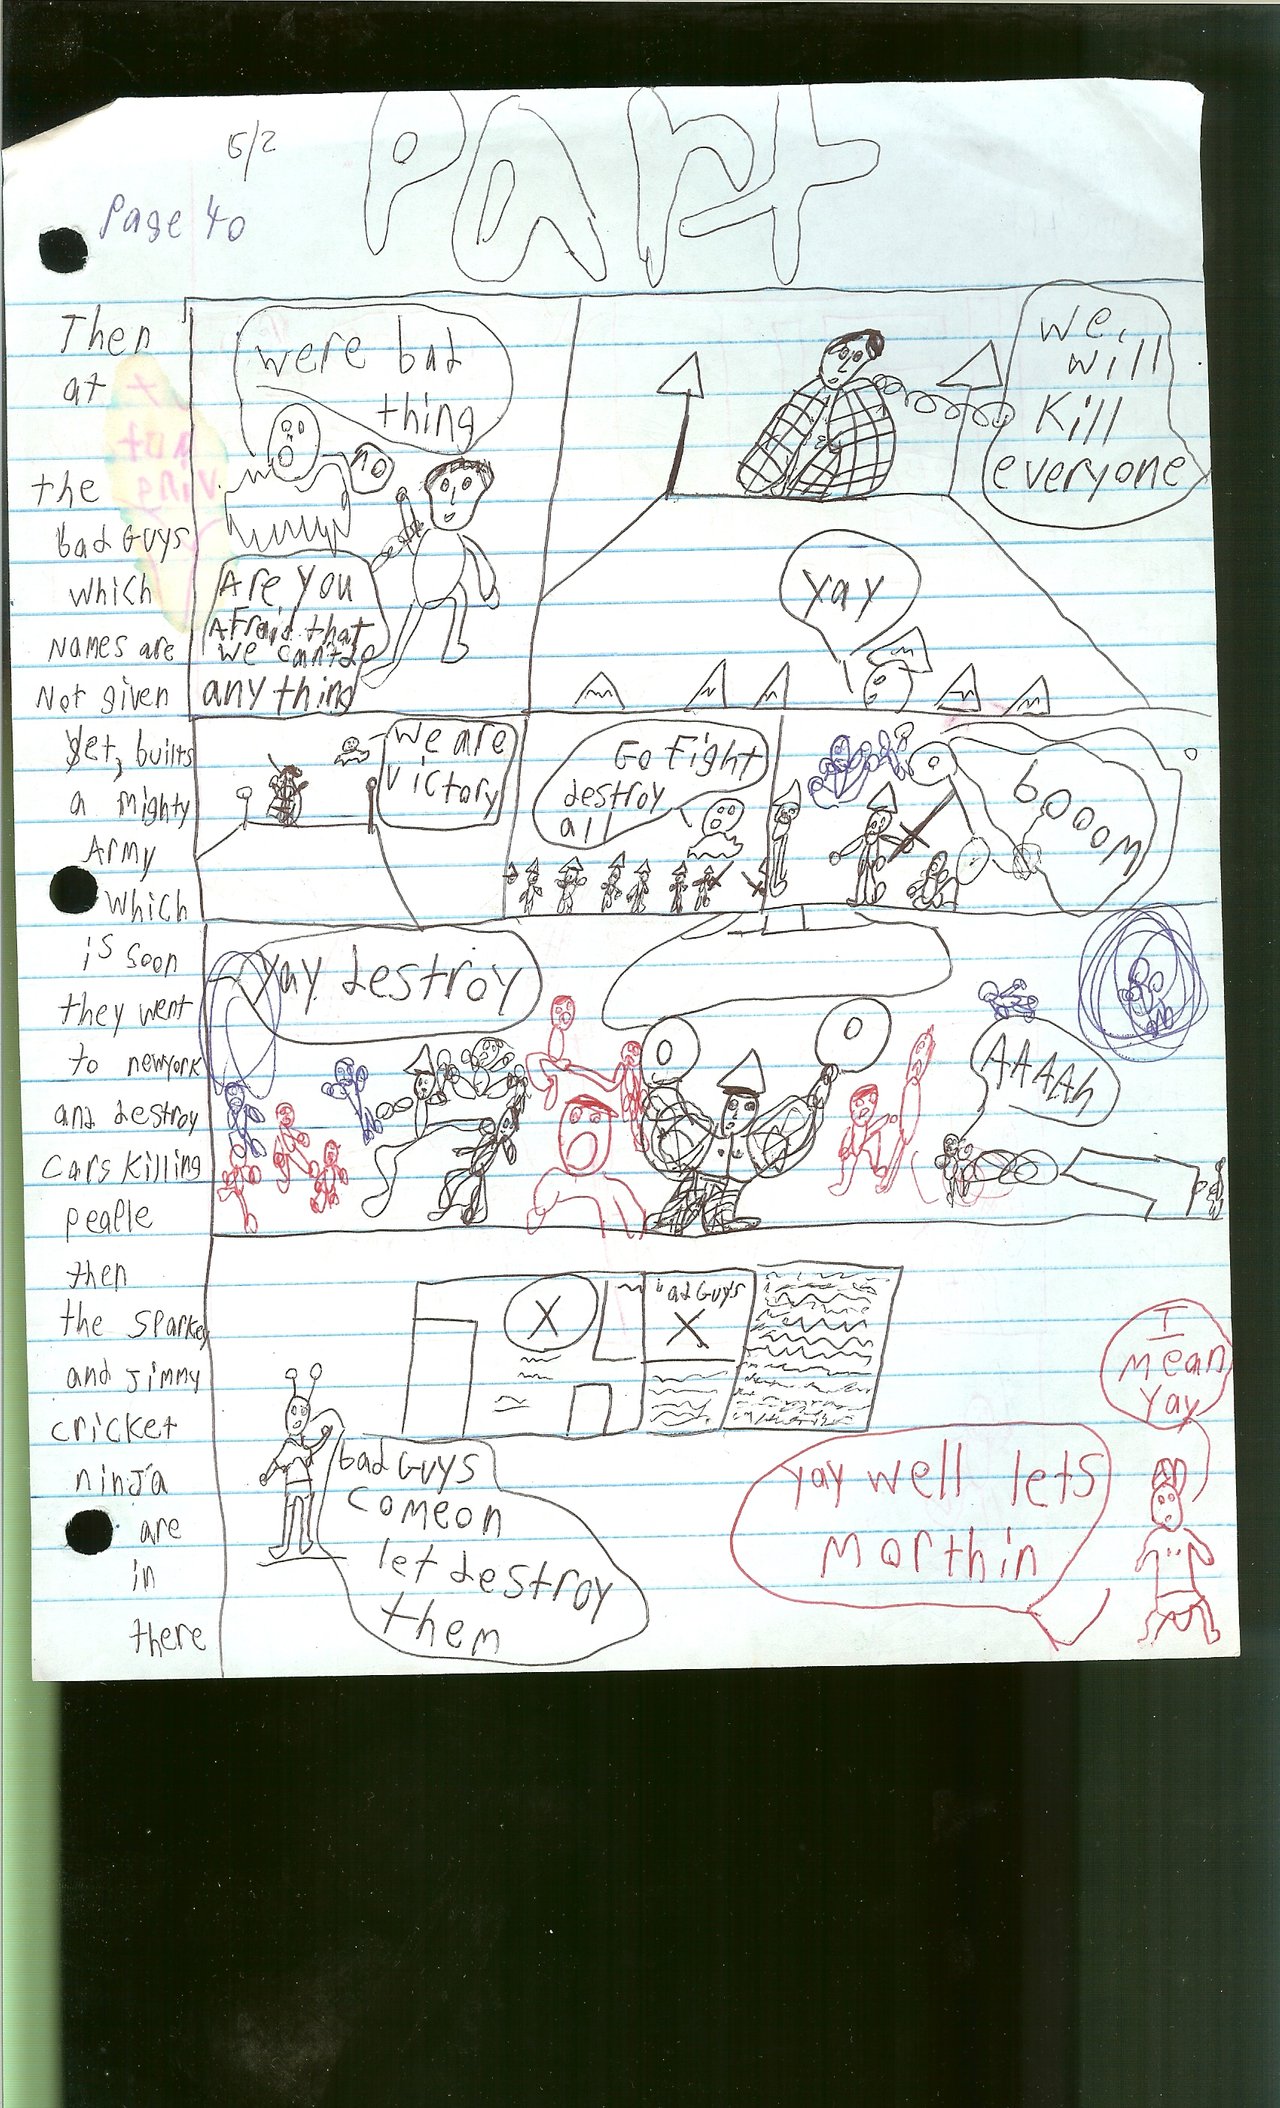 5/2
Part
Page 40
Then
at
the
bad Guys
which
names are
Not given
yet, builts
a mighty
Army
Which
is soon
they went
to newyork
and destroy
cars killing
peaple
then
the Sparkey
and Jimmy
cricket
ninja
are
in
there
were bad
thing
NO
Are you
Afraid that
we can't do
any thing
we,
will
Kill
everyone
yay
we are
victory
Go Fight
destroy
all
booom
yay destroy
AAAAh
bad Guys
X
X
bad Guys
come on
let destroy
them
I
mean
yay
yay well lets
morthin